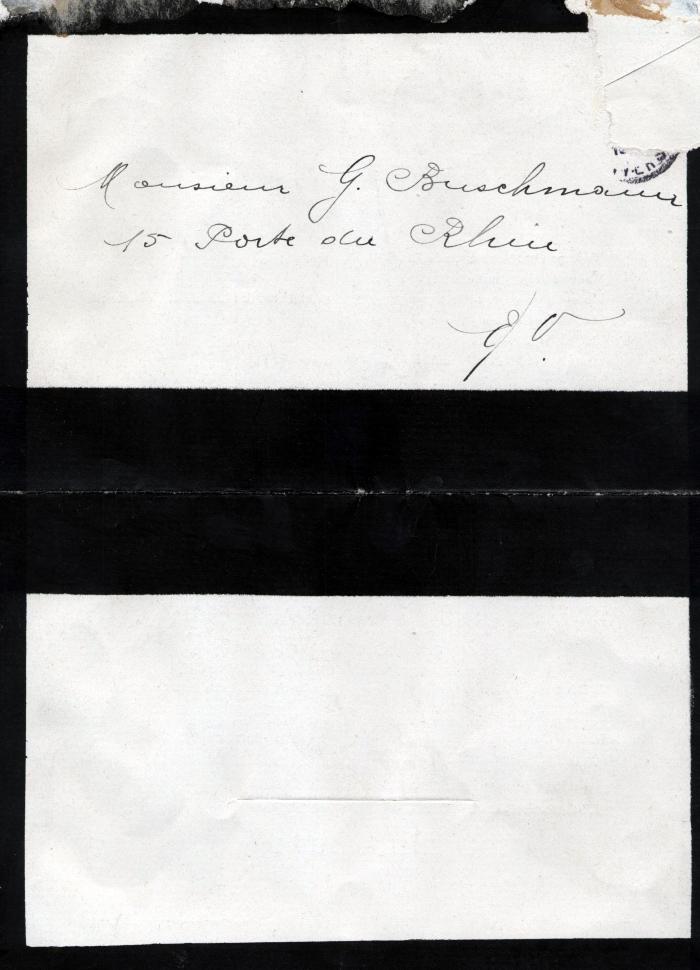 Monsieur G. Buschmann
15 Porte du Rhin